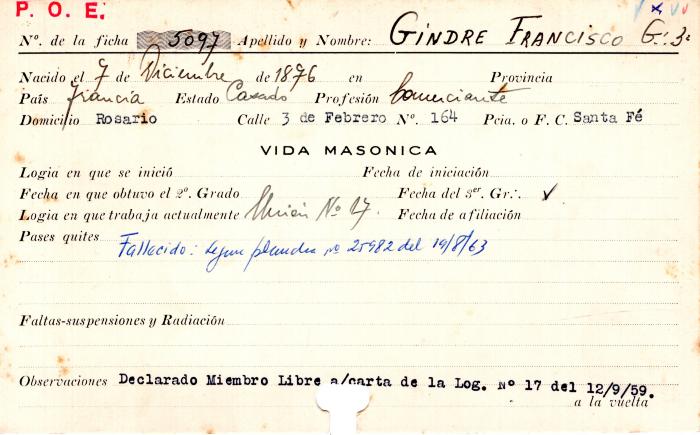 P. O. E.
Nº. de la ficha 5097 Apellido y Nombre: GINDRE FRANCISCO G∴ 3º
Nacido el 7 de Diciembre de 1876 en Provincia
País Francia Estado Casado Profesión Comerciante
Domicilio Rosario Calle 3 de Febrero Nº. 164 Pcia. o F. C. Santa Fé
VIDA MASONICA
Logia en que se inició Fecha de iniciación
Fecha en que obtuvo el 2º. Grado Fecha del 3er. Gr∴ ✓
Logia en que trabaja actualmente Unión Nº 17 Fecha de afiliación
Pases quites
Fallecido: segun plancha nº 25982 del 19/8/63
Faltas-suspensiones y Radiación
Observaciones Declarado Miembro Libre a/carta de la Log. Nº 17 del 12/9/59.
a la vuelta